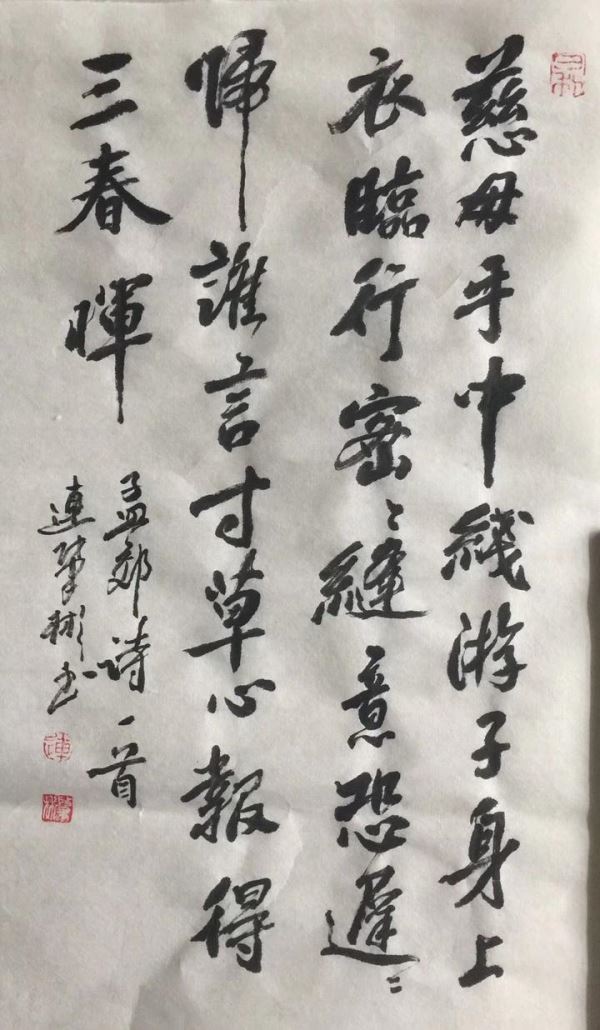 慈母手中綫游子身上
衣臨行密〻縫意恐遲〻
歸誰言寸草心報得
三春暉
孟郊诗一首
連肇彬书